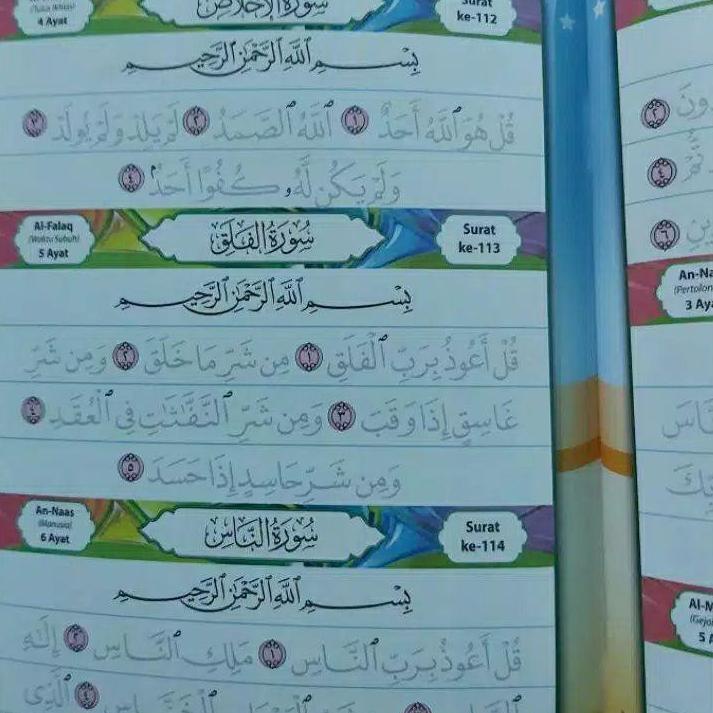 4 Ayat
سورة الإخلاص
Surat
ke-112
بِسْمِ اللَّهِ الرَّحْمَٰنِ الرَّحِيمِ
قُلْ هُوَ ٱللَّهُ أَحَدٌ ١ ٱللَّهُ ٱلصَّمَدُ ٢ لَمْ يَلِدْ وَلَمْ يُولَدْ ٣
وَلَمْ يَكُن لَّهُۥ كُفُوًا أَحَدٌۢ ٤
Al-Falaq
(Waktu Subuh)
5 Ayat
سُورَةُ الفَلَقِ
Surat
ke-113
بِسْمِ اللَّهِ الرَّحْمَٰنِ الرَّحِيمِ
قُلْ أَعُوذُ بِرَبِّ ٱلْفَلَقِ ١ مِن شَرِّ مَا خَلَقَ ٢ وَمِن شَرِّ
غَاسِقٍ إِذَا وَقَبَ ٣ وَمِن شَرِّ ٱلنَّفَّٰثَٰتِ فِى ٱلْعُقَدِ ٤
وَمِن شَرِّ حَاسِدٍ إِذَا حَسَدَ ٥
An-Naas
(Manusia)
6 Ayat
سُورَةُ النَّاسِ
Surat
ke-114
بِسْمِ اللَّهِ الرَّحْمَٰنِ الرَّحِيمِ
قُلْ أَعُوذُ بِرَبِّ ٱلنَّاسِ ١ مَلِكِ ٱلنَّاسِ ٢ إِلَٰهِ
ٱلَّذِى
٢
٤
٦
An-Na
(Pertolon
3 Aya
Al-M
(Gejo
5 A